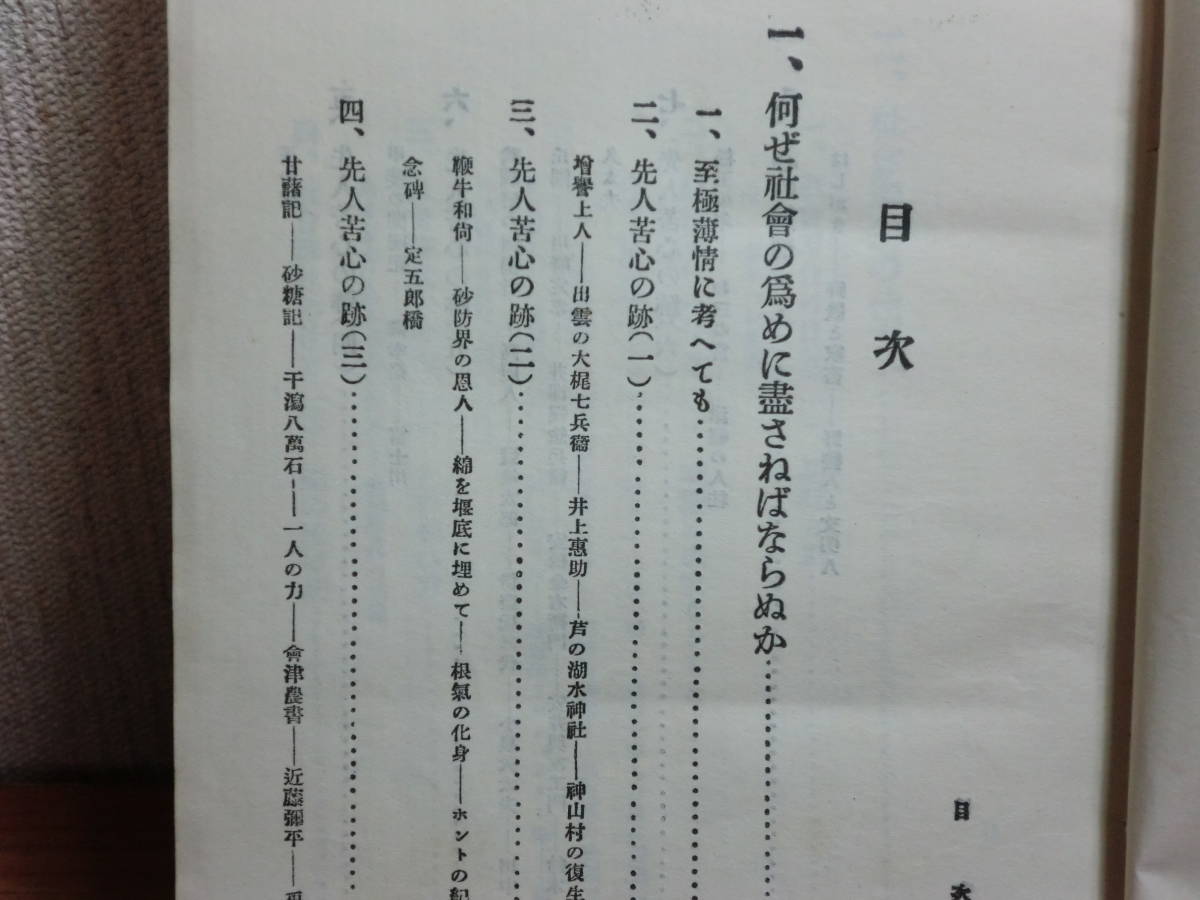 目次
目次
一、何ぜ社會の爲めに盡さねばならぬか……………
一、至極薄情に考へても……………………
二、先人苦心の跡(一)……………………
增譽上人――出雲の大梶七兵衞――井上惠助――芦の湖水神社――神山村の復生
三、先人苦心の跡(二)……………………
鞭牛和尙――砂防界の恩人――綿を堰底に埋めて――根氣の化身――ホントの紀
念碑――定五郎橋
四、先人苦心の跡(三)……………………
甘藷記――砂糖記――干瀉八萬石――一人の力――會津農書――近藤彌平――